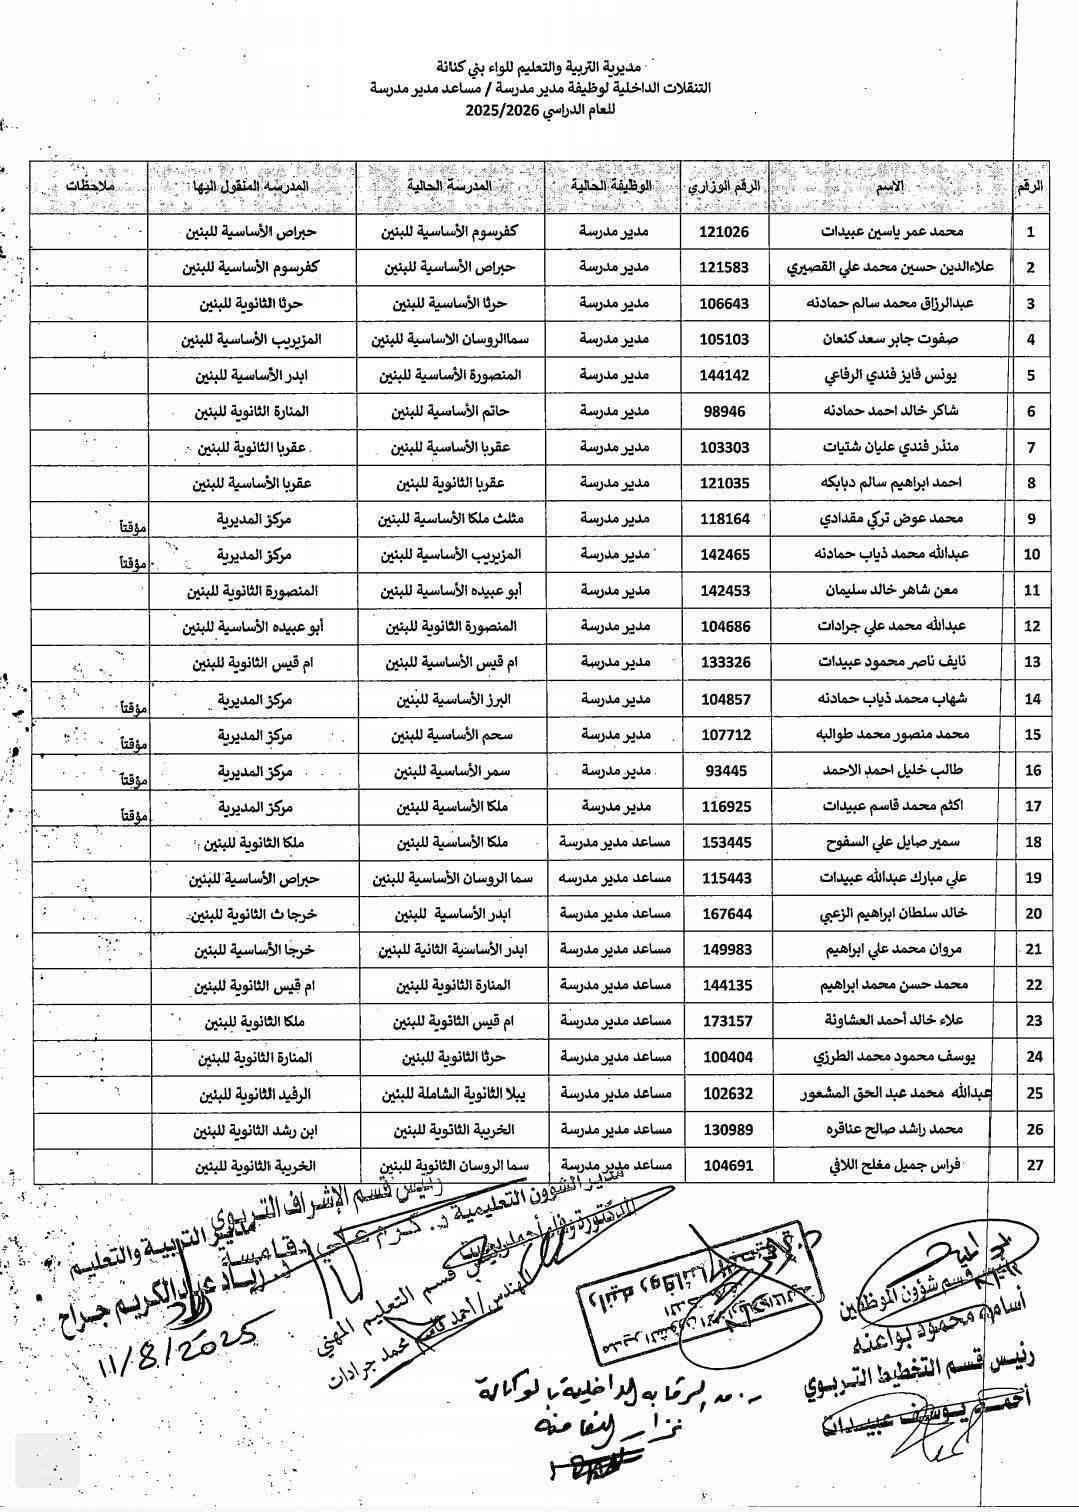 مديرية التربية والتعليم للواء بني كنانة
التنقلات الداخلية لوظيفة مدير مدرسة / مساعد مدير مدرسة
للعام الدراسي 2025/2026
الرقم الاسم الرقم الوزاري الوظيفة الحالية المدرسة الحالية المدرسه المنقول اليها ملاحظات
1 محمد عمر ياسين عبيدات 121026 مدير مدرسة كفرسوم الأساسية للبنين حبراص الأساسية للبنين
2 علاءالدين حسين محمد علي القصيري 121583 مدير مدرسة حبراص الأساسية للبنين كفرسوم الأساسية للبنين
3 عبدالرزاق محمد سالم حمادنه 106643 مدير مدرسة حرثا الأساسية للبنين حرثا الثانوية للبنين
4 صفوت جابر سعد كنعان 105103 مدير مدرسة سماالروسان الاساسية للبنين المزيريب الأساسية للبنين
5 يونس فايز فندي الرفاعي 144142 مدير مدرسة المنصورة الأساسية للبنين ابدر الأساسية للبنين
6 شاكر خالد احمد حمادنه 98946 مدير مدرسة حاتم الأساسية للبنين المنارة الثانوية للبنين
7 منذر فندي عليان شتيات 103303 مدير مدرسة عقربا الأساسية للبنين عقربا الثانوية للبنين
8 احمد ابراهيم سالم دبابكه 121035 مدير مدرسة عقربا الثانوية للبنين عقربا الأساسية للبنين
9 محمد عوض تركي مقدادي 118164 مدير مدرسة مثلث ملكا الأساسية للبنين مركز المديرية مؤقتاً
10 عبدالله محمد ذياب حمادنه 142465 مدير مدرسة المزيريب الأساسية للبنين مركز المديرية مؤقتاً
11 معن شاهر خالد سليمان 142453 مدير مدرسة أبو عبيده الأساسية للبنين المنصورة الثانوية للبنين
12 عبدالله محمد علي جرادات 104686 مدير مدرسة المنصورة الثانوية للبنين أبو عبيده الأساسية للبنين
13 نايف ناصر محمود عبيدات 133326 مدير مدرسة ام قيس الأساسية للبنين ام قيس الثانوية للبنين
14 شهاب محمد ذياب حمادنه 104857 مدير مدرسة البرز الأساسية للبنين مركز المديرية مؤقتاً
15 محمد منصور محمد طوالبه 107712 مدير مدرسة سحم الأساسية للبنين مركز المديرية مؤقتاً
16 طالب خليل احمد الاحمد 93445 مدير مدرسة سمر الأساسية للبنين مركز المديرية مؤقتاً
17 اكثم محمد قاسم عبيدات 116925 مدير مدرسة ملكا الأساسية للبنين مركز المديرية مؤقتاً
18 سمير صايل علي السفوح 153445 مساعد مدير مدرسة ملكا الأساسية للبنين ملكا الثانوية للبنين
19 علي مبارك عبدالله عبيدات 115443 مساعد مدير مدرسه سما الروسان الأساسية للبنين حبراص الأساسية للبنين
20 خالد سلطان ابراهيم الزعبي 167644 مساعد مدير مدرسة ابدر الأساسية للبنين خرجا ث الثانوية للبنين
21 مروان محمد علي ابراهيم 149983 مساعد مدير مدرسة ابدر الأساسية الثانية للبنين خرجا الأساسية للبنين
22 محمد حسن محمد ابراهيم 144135 مساعد مدير مدرسة المنارة الثانوية للبنين ام قيس الثانوية للبنين
23 علاء خالد أحمد العشاونة 173157 مساعد مدير مدرسة ام قيس الثانوية للبنين ملكا الثانوية للبنين
24 يوسف محمود محمد الطرزي 100404 مساعد مدير مدرسة حرثا الثانوية للبنين المنارة الثانوية للبنين
25 عبدالله محمد عبد الحق المشعور 102632 مساعد مدير مدرسة يبلا الثانوية الشاملة للبنين الرفيد الثانوية للبنين
26 محمد راشد صالح عناقره 130989 مساعد مدير مدرسة الخريبة الثانوية للبنين ابن رشد الثانوية للبنين
27 فراس جميل مفلح اللافي 104691 مساعد مدير مدرسة سما الروسان الثانوية للبنين الخريبة الثانوية للبنين
رئيس قسم شؤون الموظفين
أسامه محمود بواعنه
رئيس قسم التخطيط التربوي
أحمد يوسف عبيدات
مدير الشؤون التعليمية
رئيس قسم الإشراف التربوي
مدير التربية والتعليم
د. زياد عبدالكريم جراح
11/8/2025
رئيس قسم التعليم المهني
المهندس/ أحمد قاسم محمد جرادات